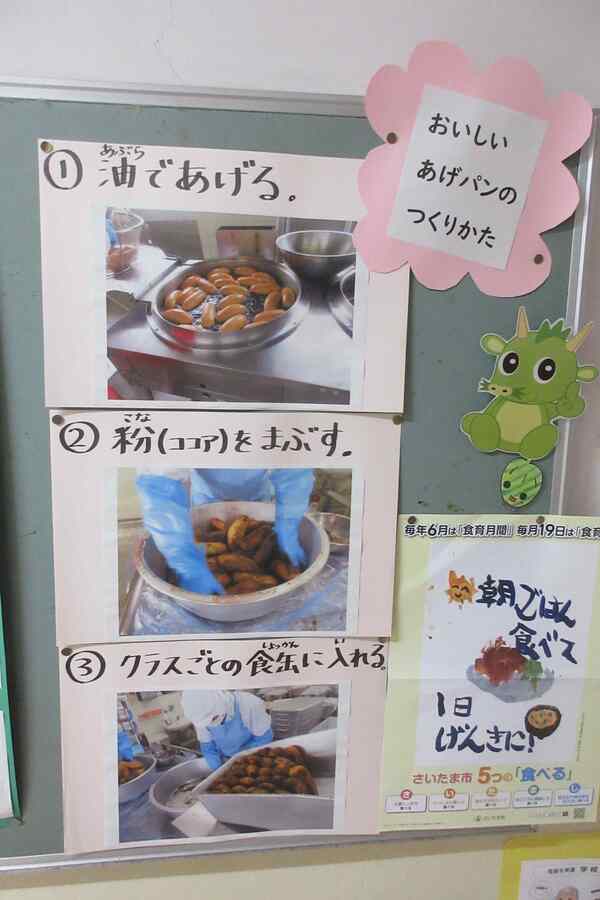 おいしい
あげパンの
つくりかた
① 油であげる。
あぶら
② 粉(ココア)をまぶす。
こな
③ クラスごとの食缶に入れる。
しょっかん
い
毎年6月は「食育月間」 毎月19日は「食育
朝ごはん
食べて
1日
げんきに!
さいたま市 5つの「食べる」
さ
い
た
ま
し